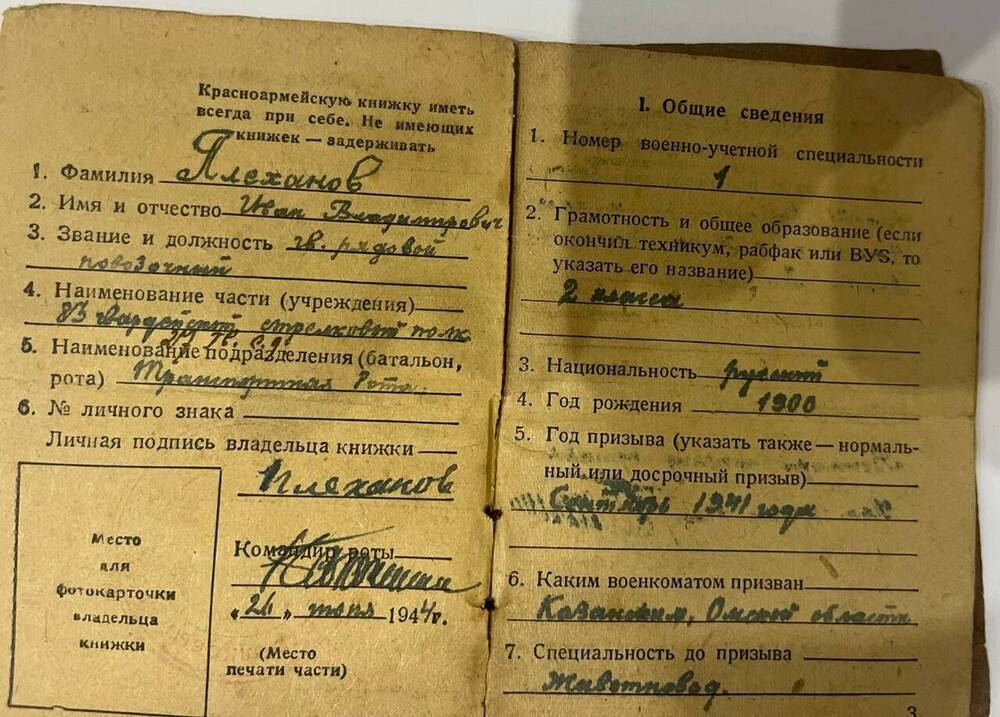 Красноармейскую книжку иметь
всегда при себе. Не имеющих
книжек — задерживать
1. Фамилия Плеханов
2. Имя и отчество Иван Владимирович
3. Звание и должность гв. рядовой
повозочный
4. Наименование части (учреждения)
83 гвардейский стрелковый полк
27 гв. с.д.
5. Наименование подразделения (батальон,
рота) Транспортная рота.
6. № личного знака
Личная подпись владельца книжки
Плеханов
Место
для
фотокарточки
владельца
книжки
Командир роты
„26„ июня 1944г.
(Место
печати части)
I. Общие сведения
1. Номер военно-учетной специальности
1
2. Грамотность и общее образование (если
окончил техникум, рабфак или ВУЗ, то
указать его название)
2 класса
3. Национальность русский
4. Год рождения 1900
5. Год призыва (указать также — нормаль-
ный или досрочный призыв)
Сентябрь 1941 года
6. Каким военкоматом призван
Казанским, Омской области
7. Специальность до призыва
Животновод.
3